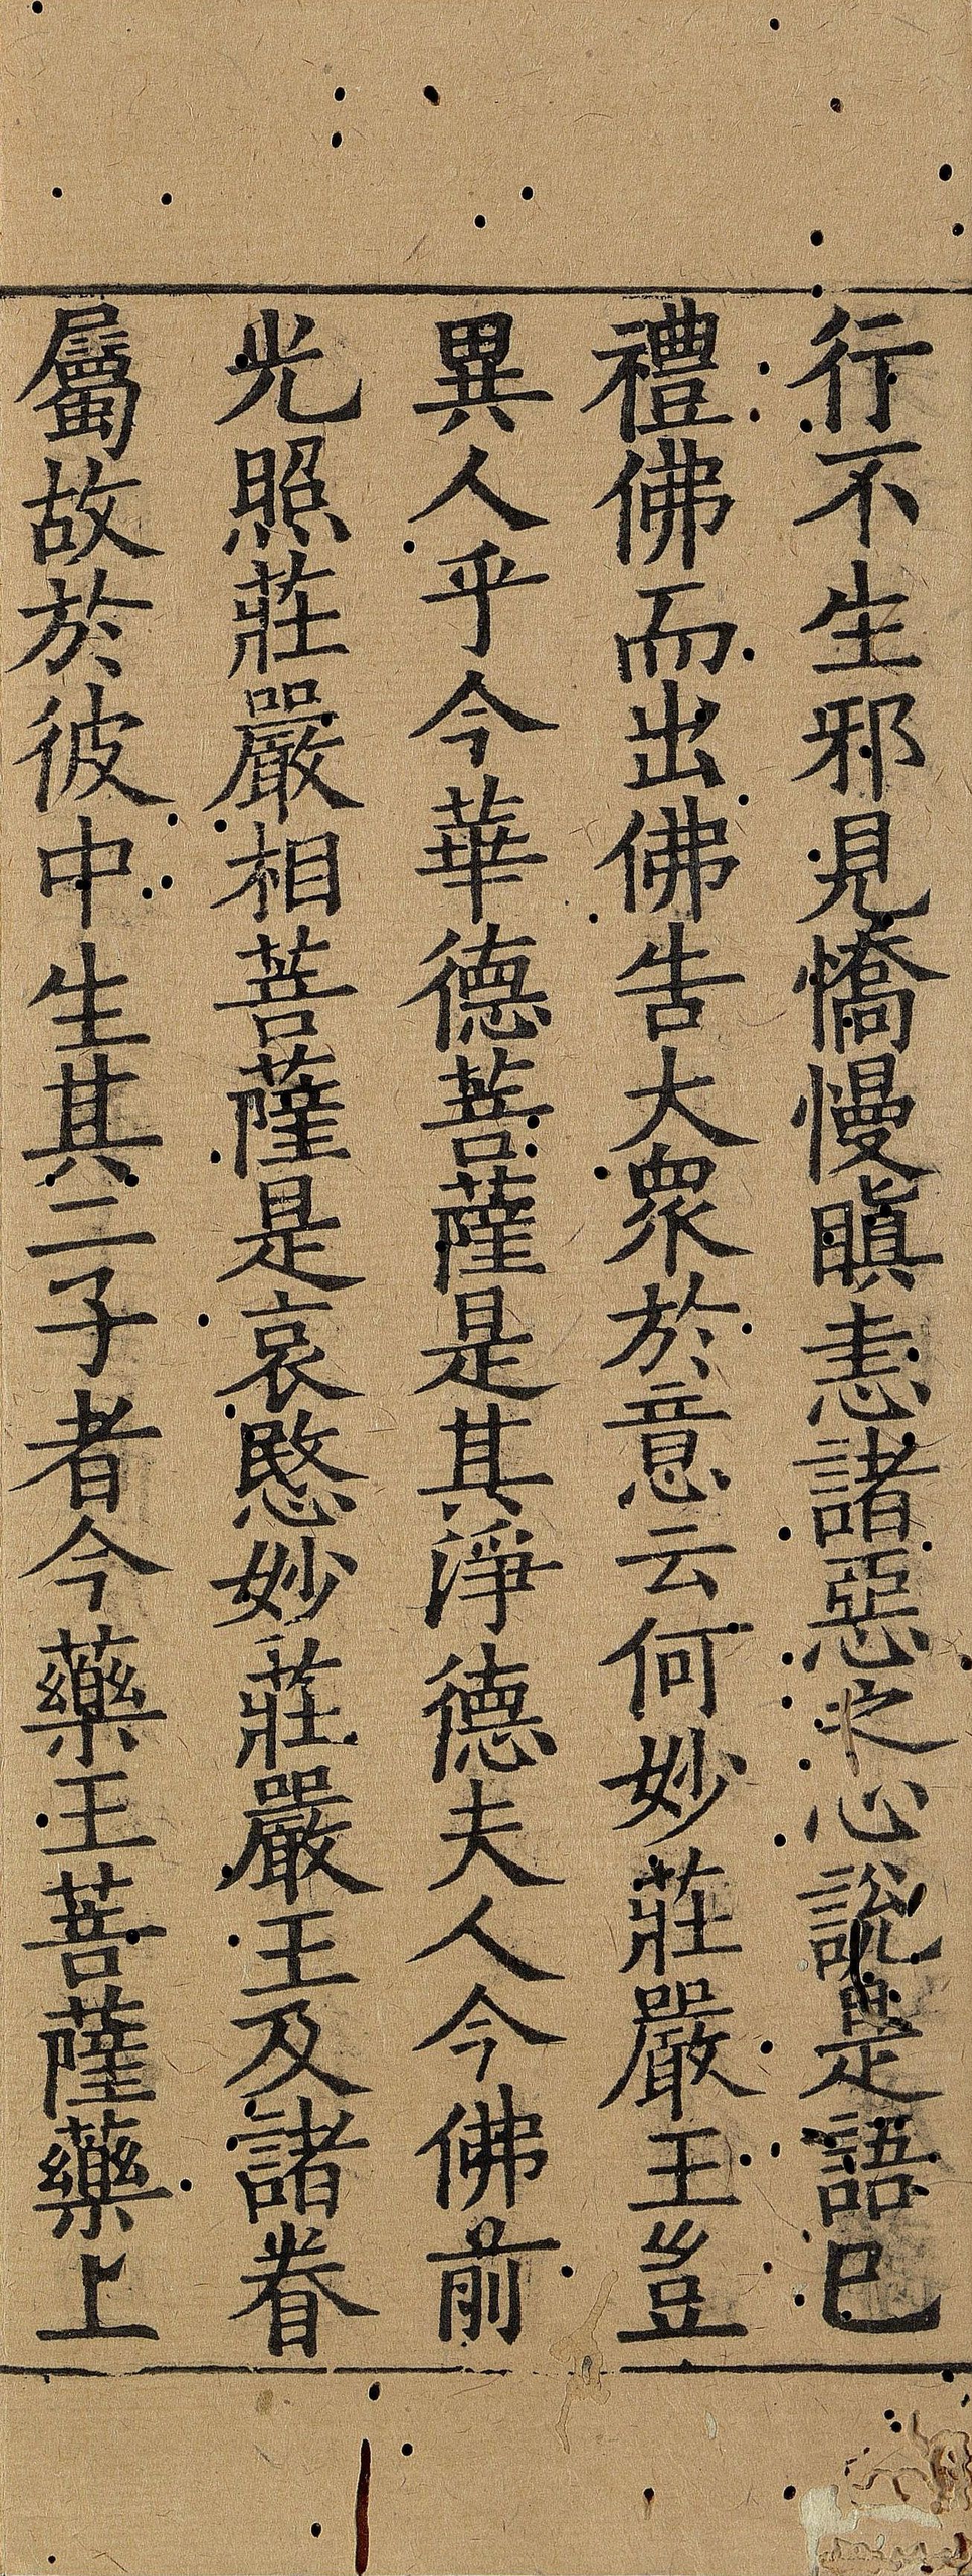 行不生邪見憍慢瞋恚諸惡之心說是語已
禮佛而出佛告大衆於意云何妙莊嚴王豈
異人乎今華德菩薩是其淨德夫人今佛前
光照莊嚴相菩薩是哀愍妙莊嚴王及諸眷
屬故於彼中生其二子者今藥王菩薩藥上